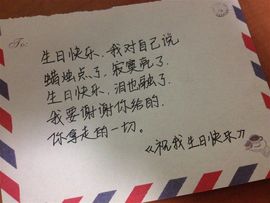 To:
生日快乐，我对自己说
蜡烛点了，寂寞亮了，
生日快乐，泪也融了，
我要谢谢你给的，
你拿走的一切。
《祝我生日快乐》